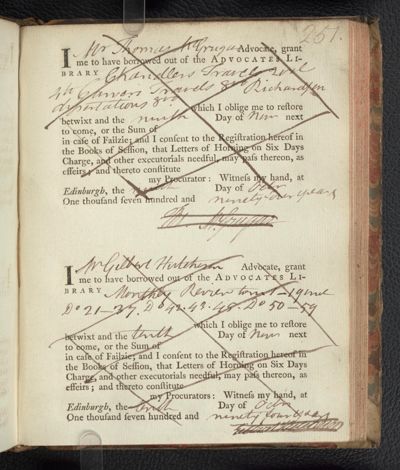 251.
I Mr Thomas McGrugar Advocate, grant
me to have borrowed out of the ADVOCATES LI-
BRARY Chandlers Travels
Travels 8vo Richardson
8vo which I oblige me to restore
betwixt and the ninth Day of Nov next
to come, or the Sum of
in case of Failzie; and I consent to the Registration hereof in
the Books of Session, that Letters of Horning on Six Days
Charge, and other executorials needful, may pass thereon, as
effeirs; and thereto constitute
my Procurators: Witness my hand, at
Edinburgh, the Day of Octr
One thousand seven hundred and ninety four years
I Mr Gilbert Hutcheson Advocate, grant
me to have borrowed out of the ADVOCATES LI-
BRARY Monthly Review
Do 21-37. Do 42. 43. 48. Do 50-59
which I oblige me to restore
betwixt and the tenth Day of Nov next
to come, or the Sum of
in case of Failzie; and I consent to the Registration hereof in
the Books of Session, that Letters of Horning on Six Days
Charge, and other executorials needful, may pass thereon, as
effeirs; and thereto constitute
my Procurators: Witness my hand, at
Edinburgh, the tenth Day of Octr
One thousand seven hundred and ninety four years